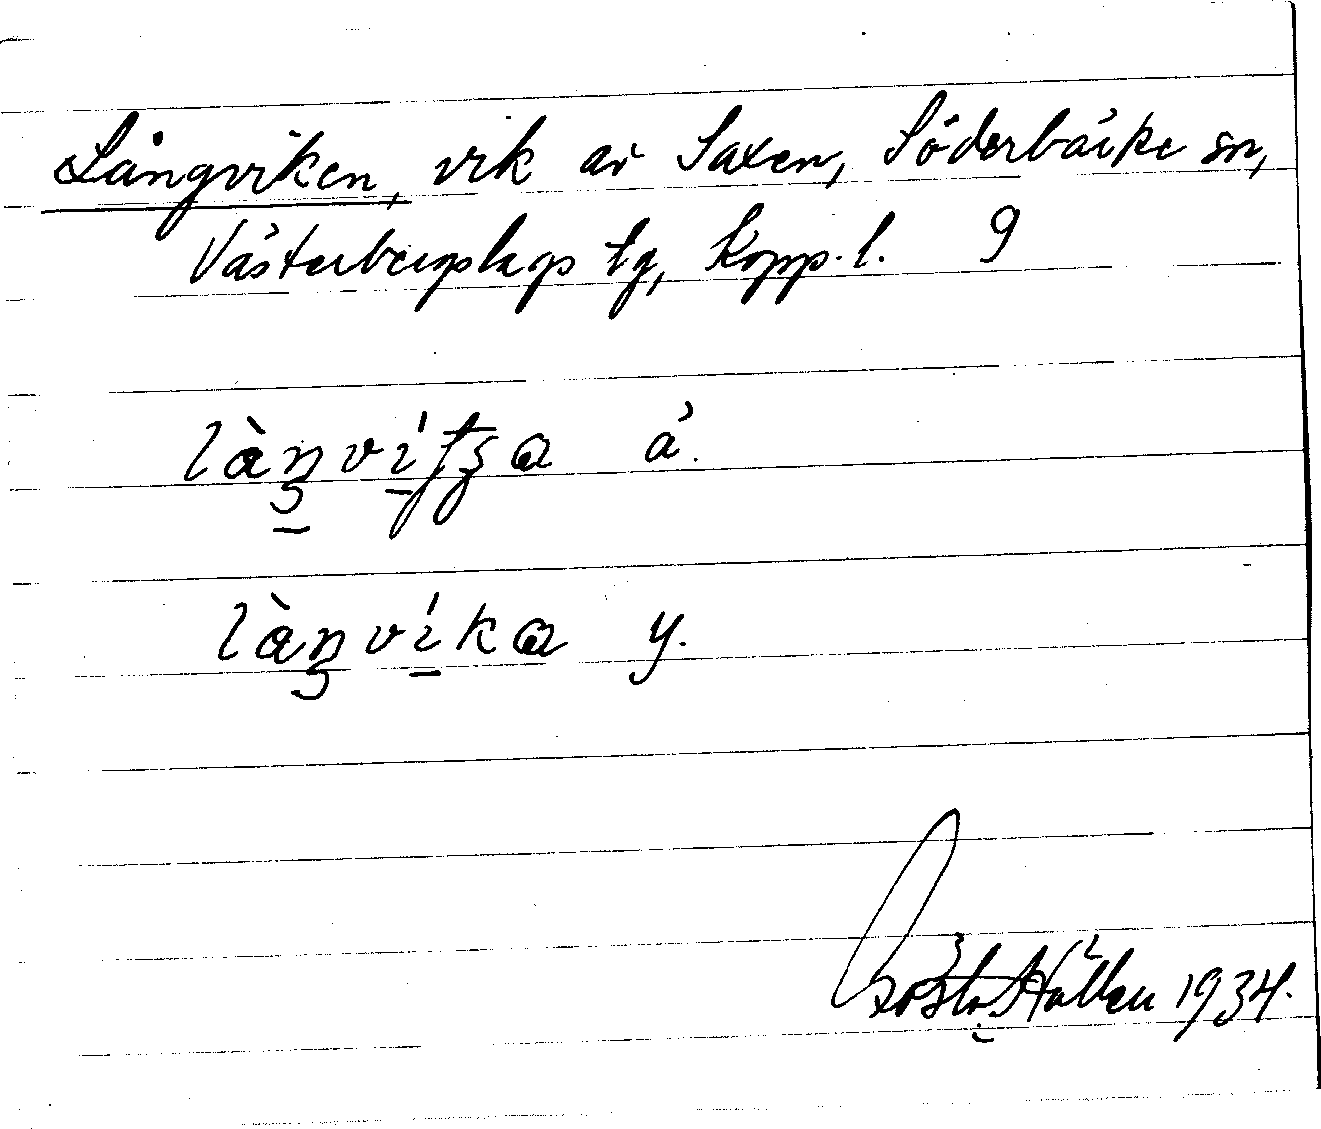 Långviken, vik av Saxen, Söderbärke sn,
Västerbergslags tg, Kopp. l. 9
làŋvítʂa ä.
làŋvíka y.
Gösta Hållen 1934.